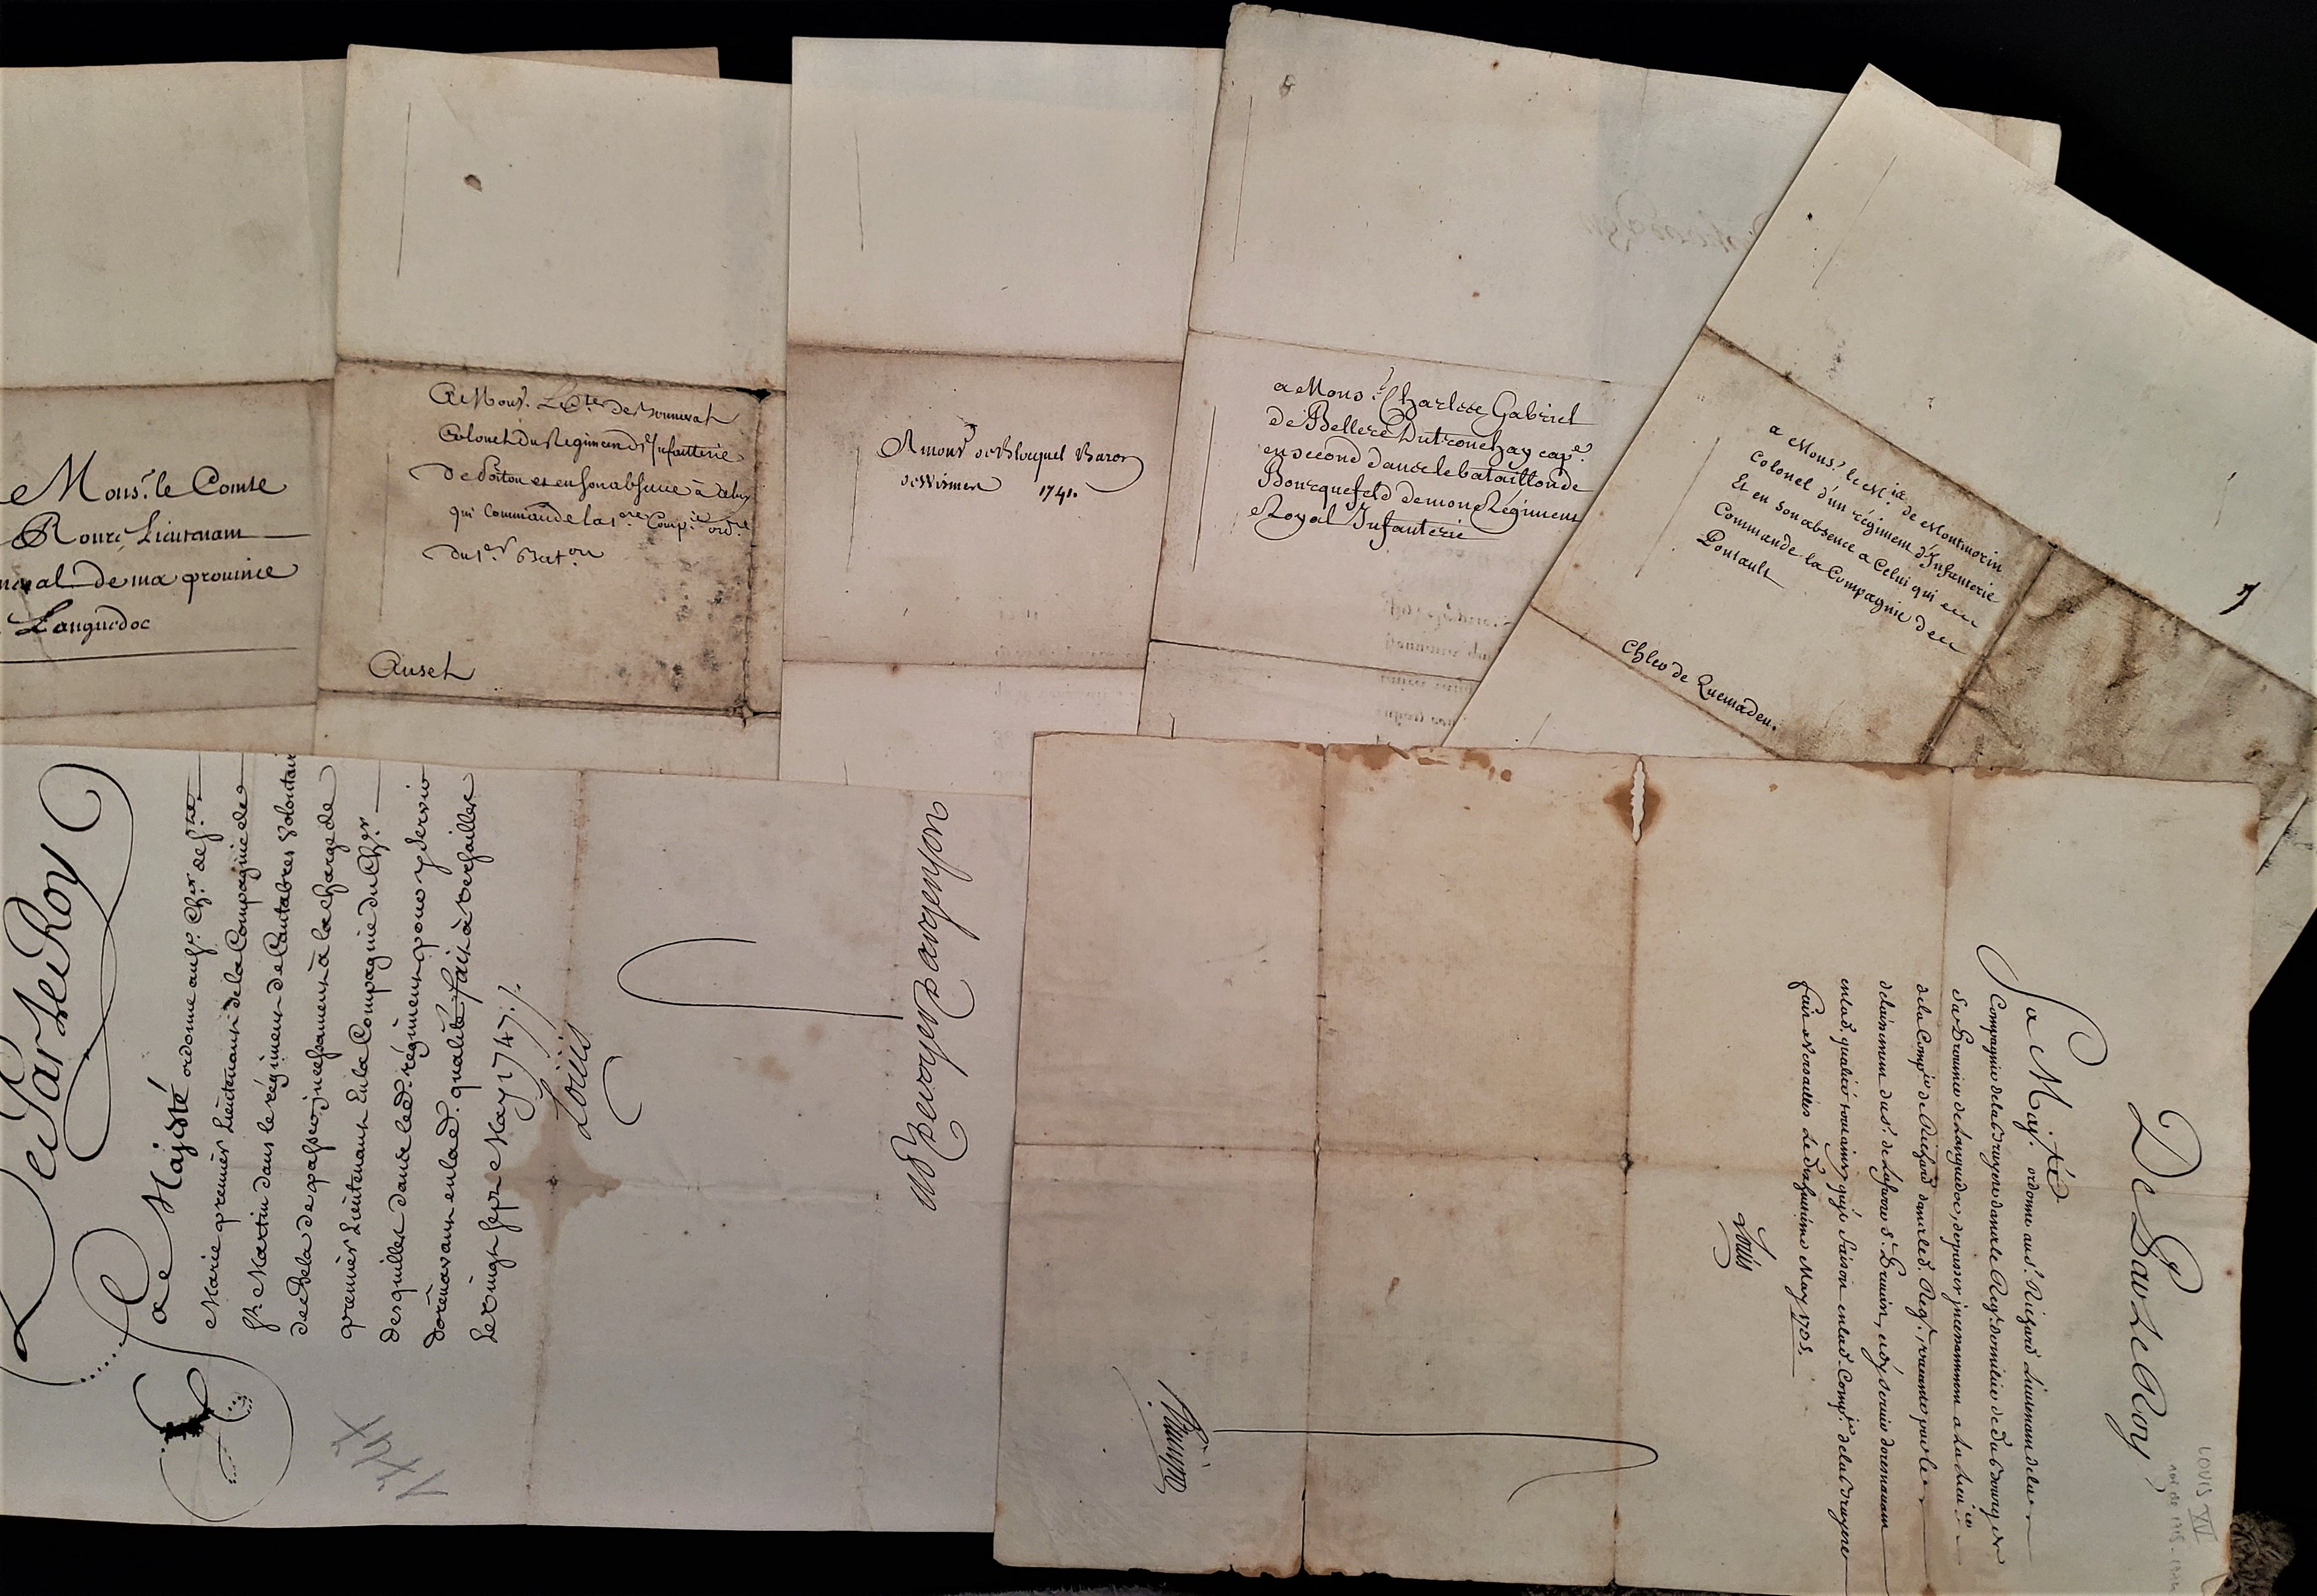 Mons.r le Comte
Roure Lieutenant
de ma province
Languedoc
A Mons.r Le C.te de Bonneval
Colonel du Regiment d'Infanterie
de Poitou et en son absence à celuy
qui Commande la 1.ere Comp.ie ord.re
du 1.er Bat.on
Auset
A Mons.r de Blocquel Baron
de Wismes 1741.
a Mons.r Charles Gabriel
de Bellere Dutronchay cap.e
en second dans le bataillon de
Bourquefeld de mon Régiment
Royal Infanterie
a Mons.r le M.is de Montmorin
Colonel d'un régiment d'Infanterie
Et en son absence a Celui qui en
Commande la Compagnie de
Pontault
Ch.ler de Quemadeu.
7
De Par Le Roy
Sa Majesté ordonne au S.r Ch.er de S.te
Marie premier Lieutenant de la Compagnie de
S.t Martin dans le régiment de Cantabres Volontaires
de passer incessament à la charge de
premier Lieutenant En la Compagnie du Ch.er
desquilles dans led. régiment pour y servir
dorénavant en lad. qualité fait à Versailles
Le vingt sept May 1747./.
Louis
M P De voyer D'argenson
De Par Le Roy
Sa Maj.té ordonne au S.r Richard Lieutenant de la
Compagnie de la Bruyere dans le Reg.t de milice de du Bourg
Sa Province de Languedoc, de passer incessamment a la Lieu.ce
de la Comp.ie de Richard dans led. Reg.t, vacante par le
delaissement du S.r de Lafarre S.t Privier, et d'y servir dorenavant
en lad. qualité tout ainsy qu'il faisoit en lad. Comp.ie de la Bruyere
fait a Versailles Le May 1705.
Louis
LOUIS XIV